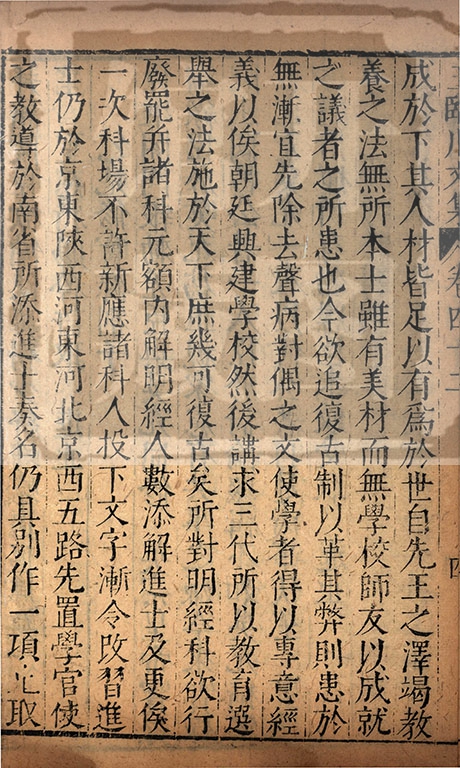 王臨川文集 卷四十二
四
成於下其人材皆足以有爲於世自先王之澤竭教
養之法無所本士雖有美材而無學校師友以成就
之議者之所患也今欲追復古制以革其弊則患於
無漸宜先除去聲病對偶之文使學者得以專意經
義以俟朝廷興建學校然後講求三代所以教育選
舉之法施於天下庶幾可復古矣所對明經科欲行
廢罷并諸科元額內解明經人數添解進士及更俟
一次科場不許新應諸科人投下文字漸令改習進
士仍於京東陝西河東河北京西五路先置學官使
之教導於南省所添進士奏名仍具別作一項止取